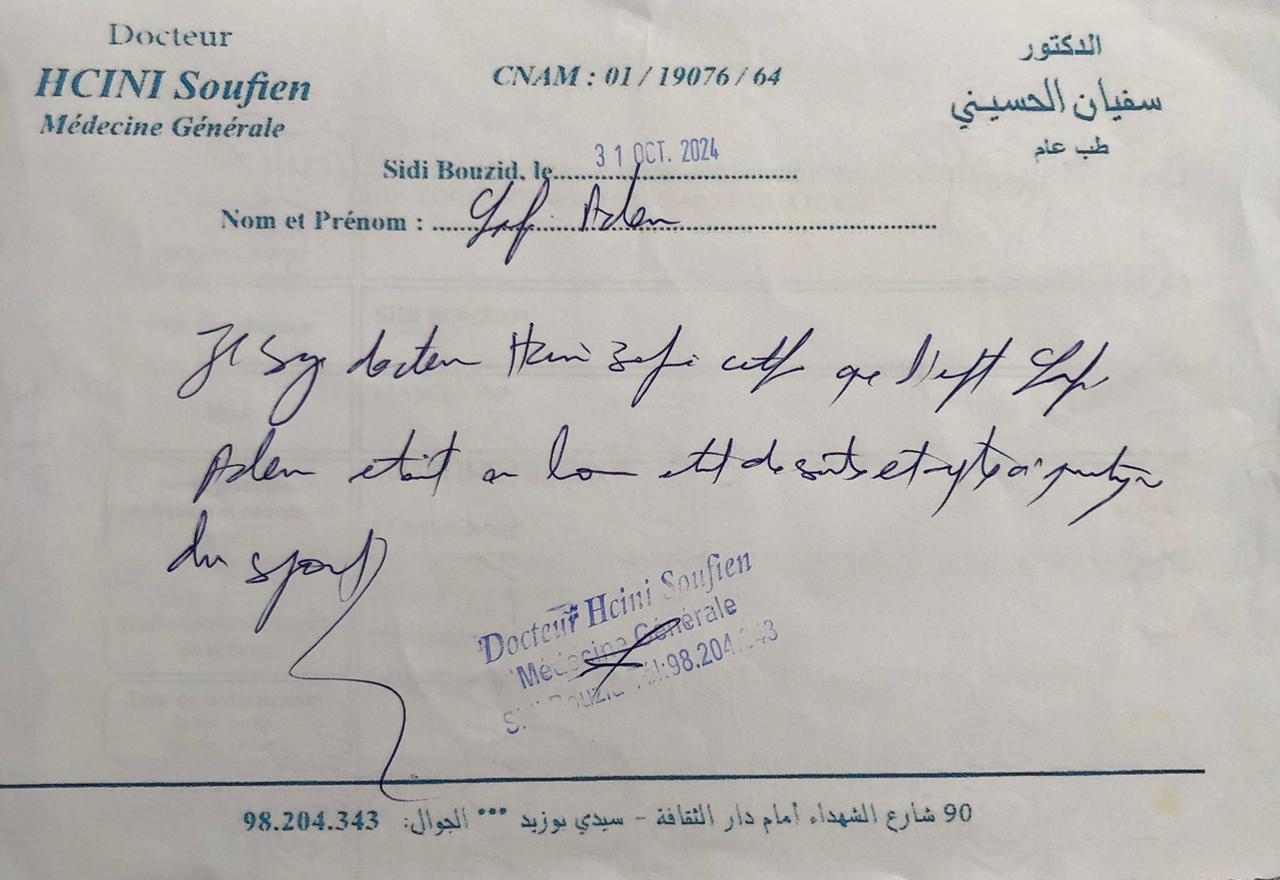 Docteur
HCINI Soufien
Médecine Générale
CNAM : 01 / 19076 / 64
الدكتور
سفيان الحسيني
طب عام
Sidi Bouzid, le 31 OCT. 2024
Nom et Prénom : Adem
Je docteur Hcini que
Adem etait en bon etat de sante et apte a pratiquer
du sport
Docteur Hcini Soufien
Médecine Générale
Sidi Bouzid Tél:98.204.343
90 شارع الشهداء أمام دار الثقافة - سيدي بوزيد *** الجوال: 98.204.343